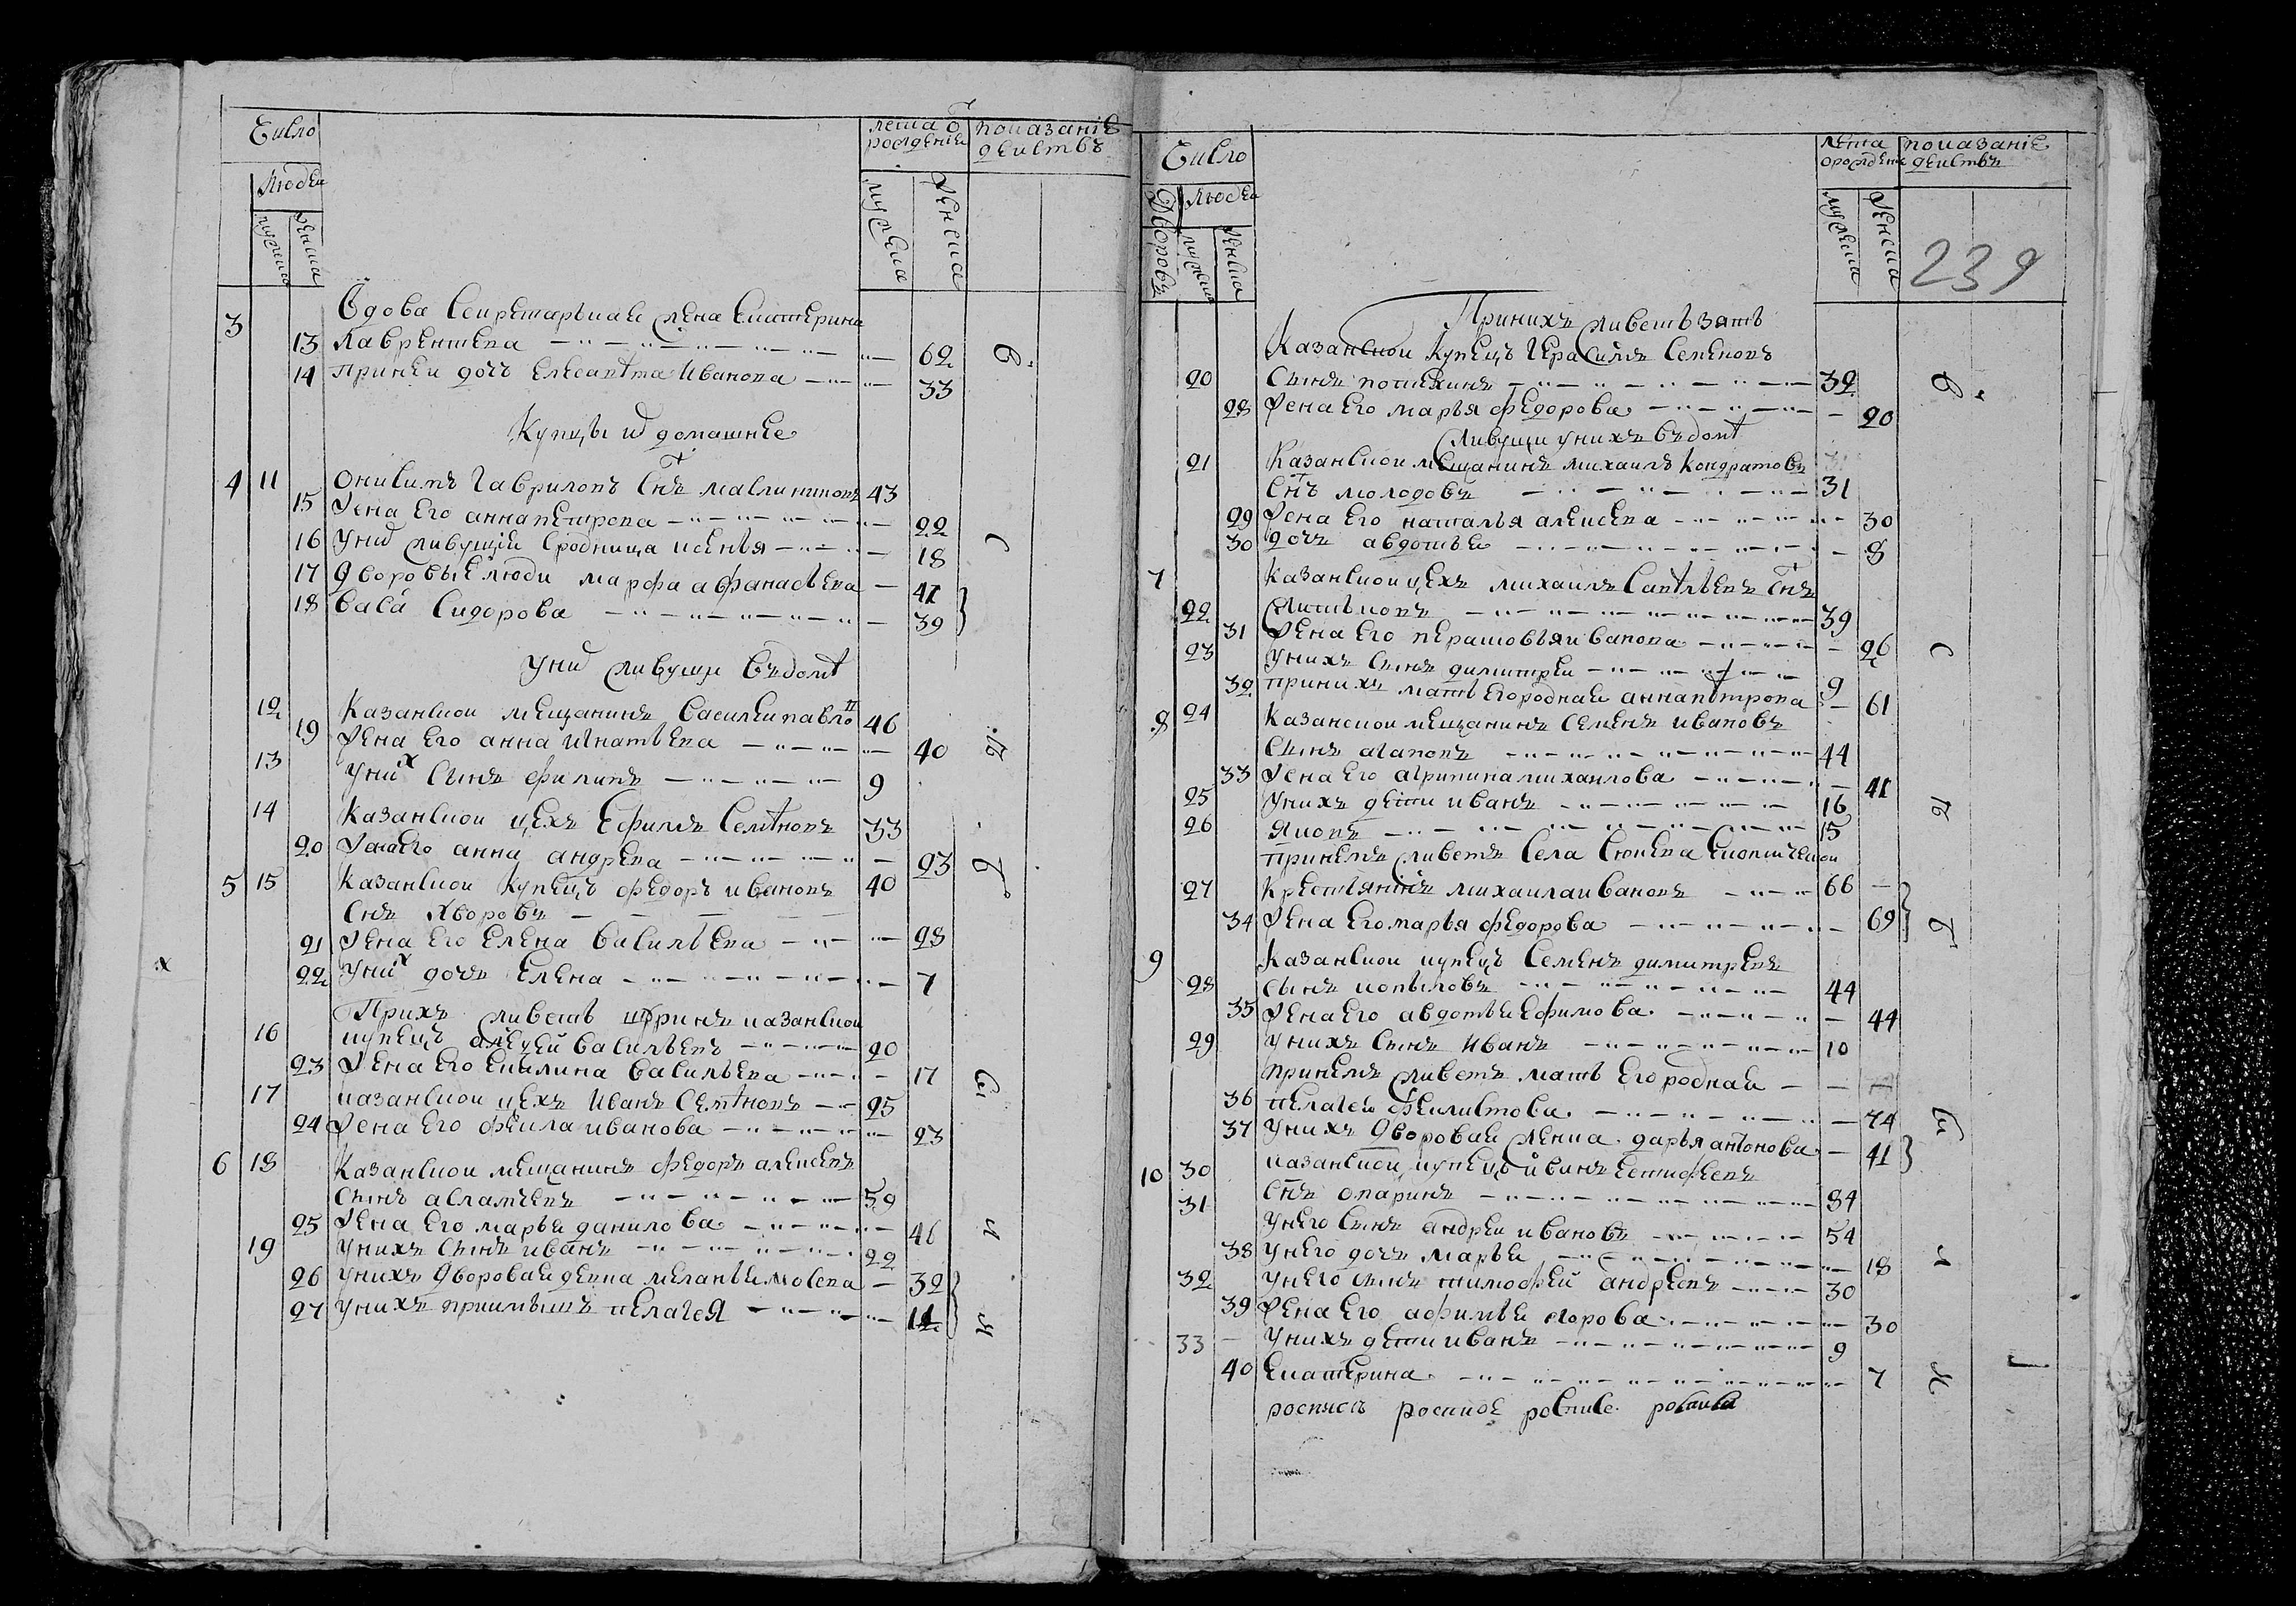 Число
Людей
мужска
женска
лета от рождение
мужеска
женска
показаніе действъ
3 вдова секретарьская жена екатерина
13 лаврентева 62
14 При ней дочь елесавета иванова 33
Купцы и домашние
4 11 онисимъ гавриловъ снъ масленниковъ 43
15 жена его анна петрова 22
16 у них живущие сродница ксенья 18
17 дворовые люди марфа афанасьева 41
18 васа сидорова 39
у них живущи в доме
12 казанской мещанинъ василеи павло 46
19 жена его анна игнатьева 40
13 у них сынъ филипъ 9
14 казанской цехъ ефимъ семеновъ 33
20 жена его анна андрева 23
5 15 казанской купецъ федоръ ивановъ 40
снъ яворовъ
21 жена его елена васильева 28
22 у них дочь елена 7
При ихъ живетъ казанской
16 купецъ алексей васильевъ 20
23 жена его акилина васильева 17
17 казанской цехъ иванъ семеновъ 25
24 жена его фекла иванова 23
6 18 казанской мещанинъ федоръ алексеевъ
сынъ асламъевъ 59
25 жена его марье данилова 46
19 у нихъ сынъ иванъ 22
26 у нихъ дворовая девка меланье мосева 32
27 у нихъ приимышъ пелагея 11
Число
Дворовъ
Людей
мужска
женска
лета о рождене
мужеска
женска
показаніе действъ
239
При нихъ живетъ зять
казанской купецъ герасимъ семеновъ
20 сынъ потехинъ 32
28 жена его марья федорова 20
живущи у нихъ в доме
21 казанской мещанинъ михаилъ кондратовъ
снъ молодовъ 31
29 жена его наталья алексева 30
30 дочь авдотье 8
7 казанской цехъ михаилъ савельевъ снъ
22 39
31 жена его парасковья иванова 26
23 у нихъ сынъ димитреи 9
32 при нихъ мать его родная анна петрова 61
8 24 казанской мещанинъ семенъ ивановъ
сынъ агаповъ 44
33 жена его агрипина михаилова 41
25 у нихъ дети иванъ 16
26 яковъ 15
при немъ живетъ села
27 крестьянинъ михаила ивановъ 66
34 жена его марья федорова 69
9 казанской купецъ семенъ димитревъ
28 сынъ копыловъ 44
35 жена его авдотье ефимова 44
29 у нихъ сынъ иванъ 10
при немъ живетъ мать его родная
36 пелагея феклистова 74
37 у нихъ дворовая женка дарья антонова 41
10 30 казанской купецъ иванъ евтифеевъ
31 снъ опаринъ 84
у него сынъ андреи ивановъ 54
38 у него дочь марье 18
32 у него сынъ тимофей андреевъ 30
39 жена его афимье егорова 30
33 у нихъ дети иванъ 9
40 екатерина 7